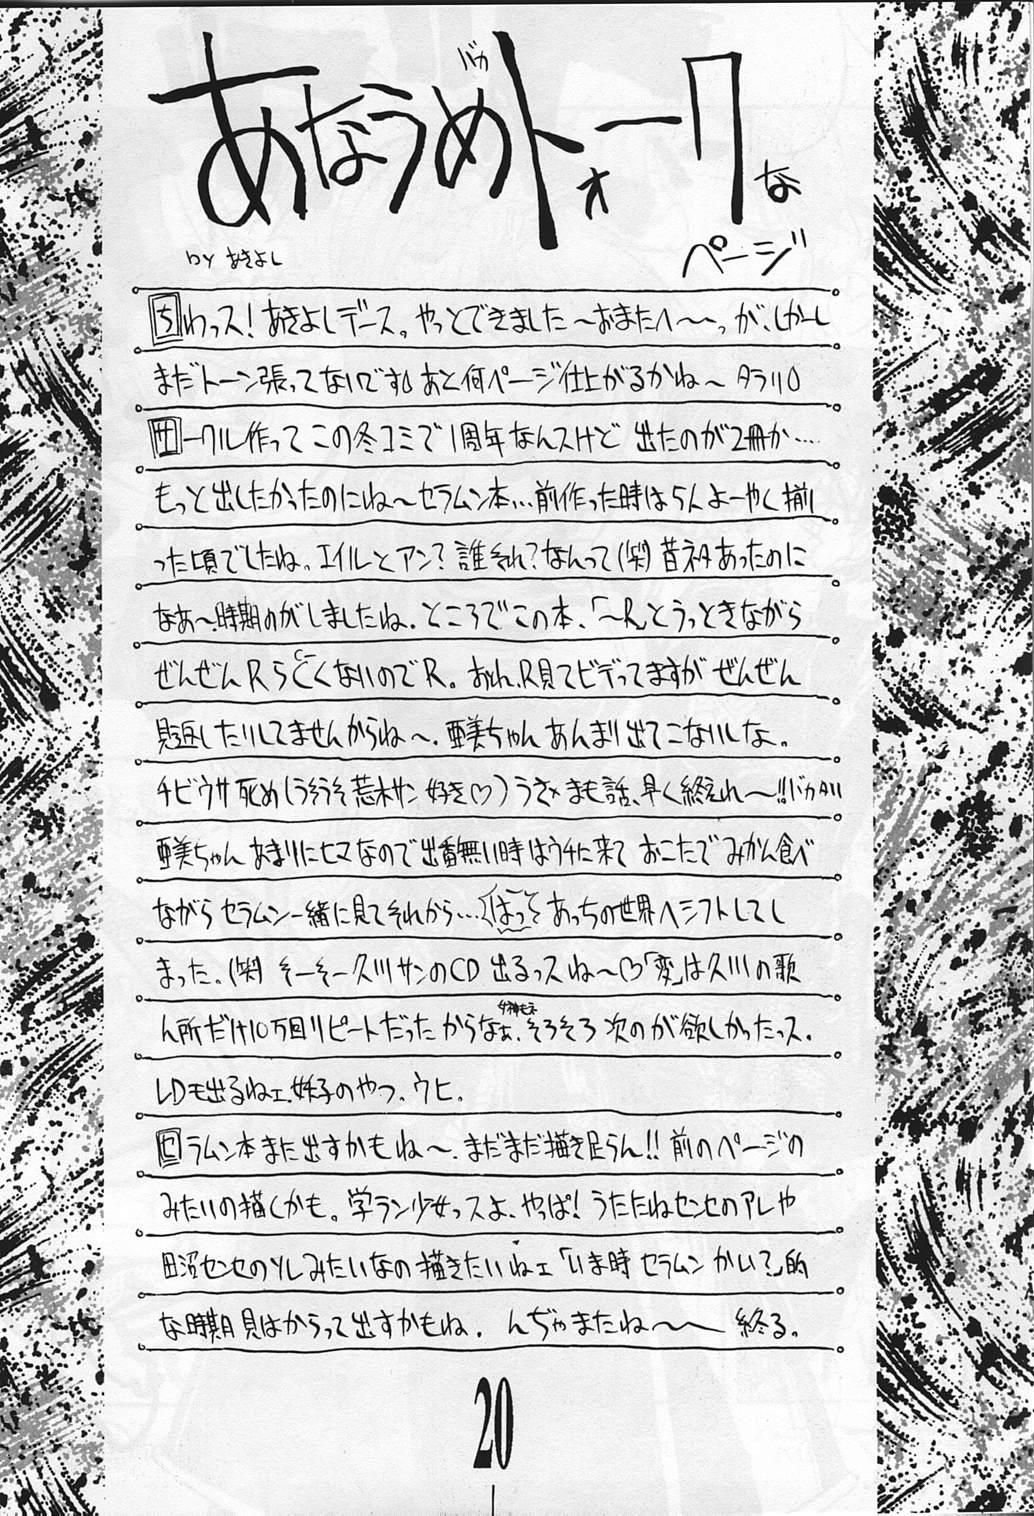 バカ
あなうめトォークな
ページ
by あきよし
ちわっス!あきよしデース。やっとできました〜おまたへ〜〜っが、しかーし
まだトーン張ってないです あと何ページ仕上がるかね〜タラリ
サークル作ってこの冬コミで1周年なんスけど 出たのが2冊か…
もっと出したかったのにね〜セラムン本…前作った時は5人よーやく揃
った頃でしたね。エイルとアン?誰それ?なんって(笑)昔ネタあったのに
なあ〜、時期のがしましたね、ところでこの本、「〜R」とうっときながら
ぜんぜんRらしくないのでR。おれ、R見てビデってますがぜんぜん
見返したりしてませんからね〜、亜美ちゃんあんまり出てこないしな。
チビウサ死め(うそうそ荒木サン好き♡)うさ×まも話、早く終えれ〜!!バカタリ
亜美ちゃんあまりにヒマなので出番無い時はウチに来ておこたでみかん食べ
ながらセラムン一緒に見てそれから…はっそあっちの世界へシフトしてし
まった。(笑)そーそー久川サンのCD出るっスね〜♡「変」は久川の歌
ん所だけ10万回リピートだったからなぁ、そろそろ次のが欲しかったっス。
LDも出るねェ、妖子のやつ、ウヒ。
セラムン本また出すかもね〜、まだまだ描き足らん!!前のページの
みたいの描くかも。学ラン少女っスよ、やっぱ!うたたねセンセのアレや
田沼センセのソレみたいなの描きたいねェ「いま時セラムンかい?」的
な時期見はからって出すかもね、んぢゃまたね〜〜 終る。
20